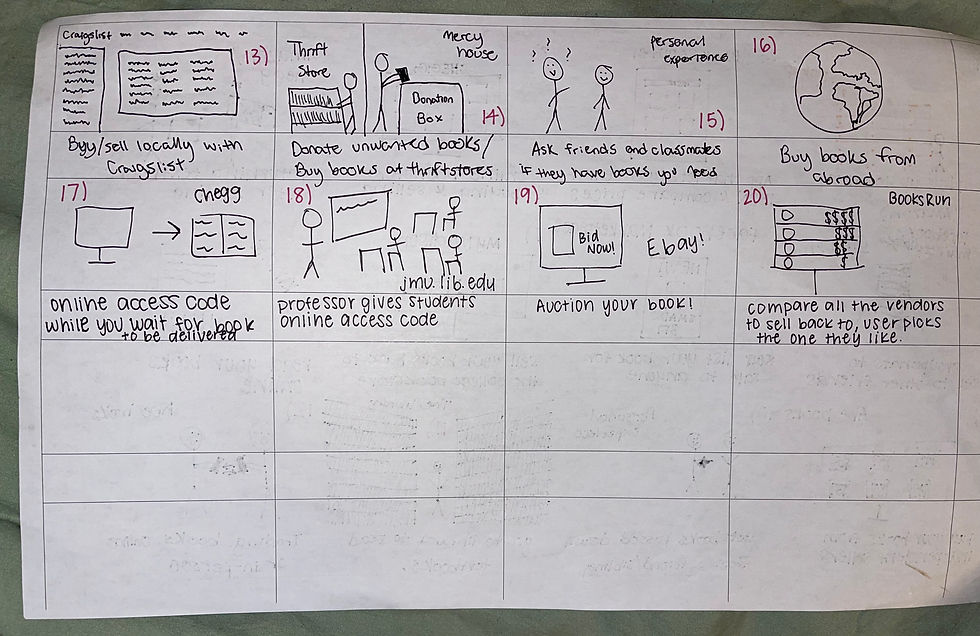 Craigslist
13)
Thrift
Store
mercy
house
Donation
Box
14)
personal
experience
15)
16)
Buy/sell locally with
Craigslist
Donate unwanted books/
Buy books at thriftstores
Ask friends and classmates
if they have books you need
Buy books from
abroad
17)
chegg
18)
jmu.lib.edu
19)
Bid
Now!
Ebay!
20)
BooksRun
$$$$
$$$
$$
$
online access code
while you wait for book
to be delivered
professor gives students
online access code
Auction your book!
compare all the vendors
to sell back to, user picks
the one they like.